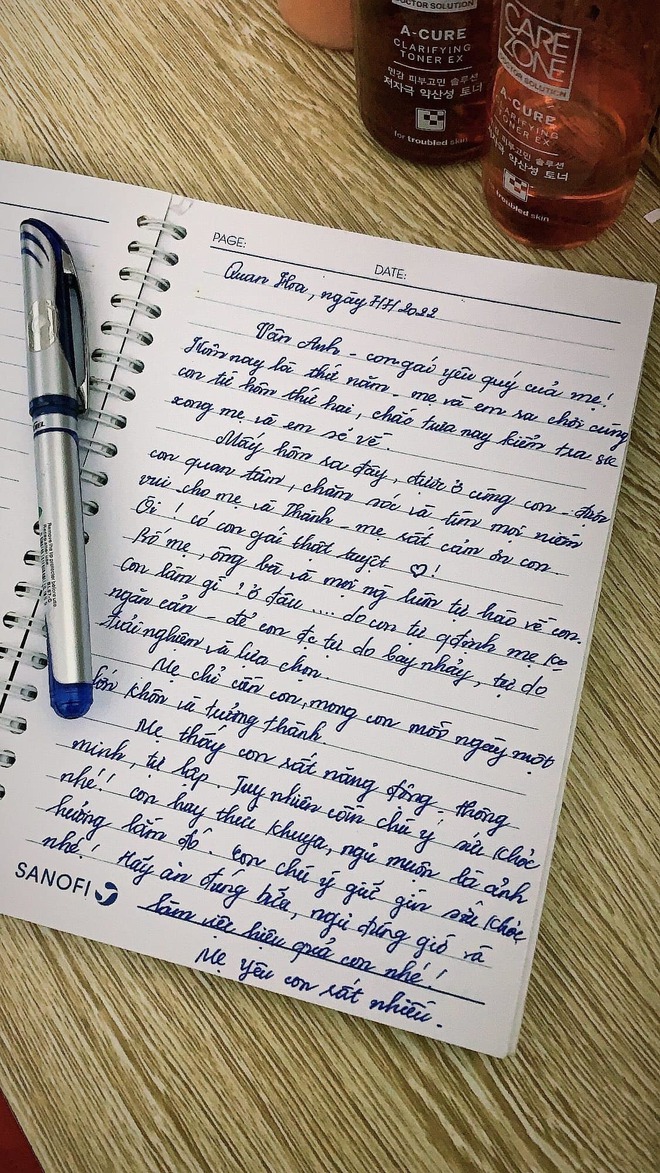 DOCTOR SOLUTION
A-CURE
CLARIFYING
TONER EX
민감 피부고민 솔루션
저자극 약산성 토너
for troubled skin
CARE
ZONE
DOCTOR SOLUTION
A-CURE
CLARIFYING
TONER EX
피부고민 솔루션
저자극 약산성 토너
troubled skin
PAGE:
DATE:
Quan Hoa, ngày 7/7/2022
Vân Anh - con gái yêu quý của mẹ!
Hôm nay là thứ năm - mẹ và em ra chơi cùng
con từ hôm thứ hai, chắc trưa nay kiểm tra sk
xong mẹ và em sẽ về.
Mấy hôm ra đây, được ở cùng con - được
con quan tâm, chăm sóc và tìm mọi niềm
vui cho mẹ và Thành - mẹ rất cảm ơn con.
Ôi! có con gái thật tuyệt ♡!
Bố mẹ, ông bà và mọi ng luôn tự hào về con.
Con làm gì? ở đâu .... do con tự qđịnh mẹ ko
ngăn cản - để con đc tự do bay nhảy, tự do
trải nghiệm và lựa chọn.
Mẹ chỉ cần con, mong con mỗi ngày một
lớn khôn và trưởng thành.
Mẹ thấy con rất năng động, thông
minh, tự lập. Tuy nhiên cần chú ý sức khỏe
nhé!! con hay thức khuya, ngủ muộn là ảnh
hưởng lắm đó. Con chú ý giữ gìn sức khỏe
nhé! Hãy ăn đúng bữa, ngủ đúng giờ và
làm việc hiệu quả con nhé!
Mẹ yêu con rất nhiều.
SANOFI